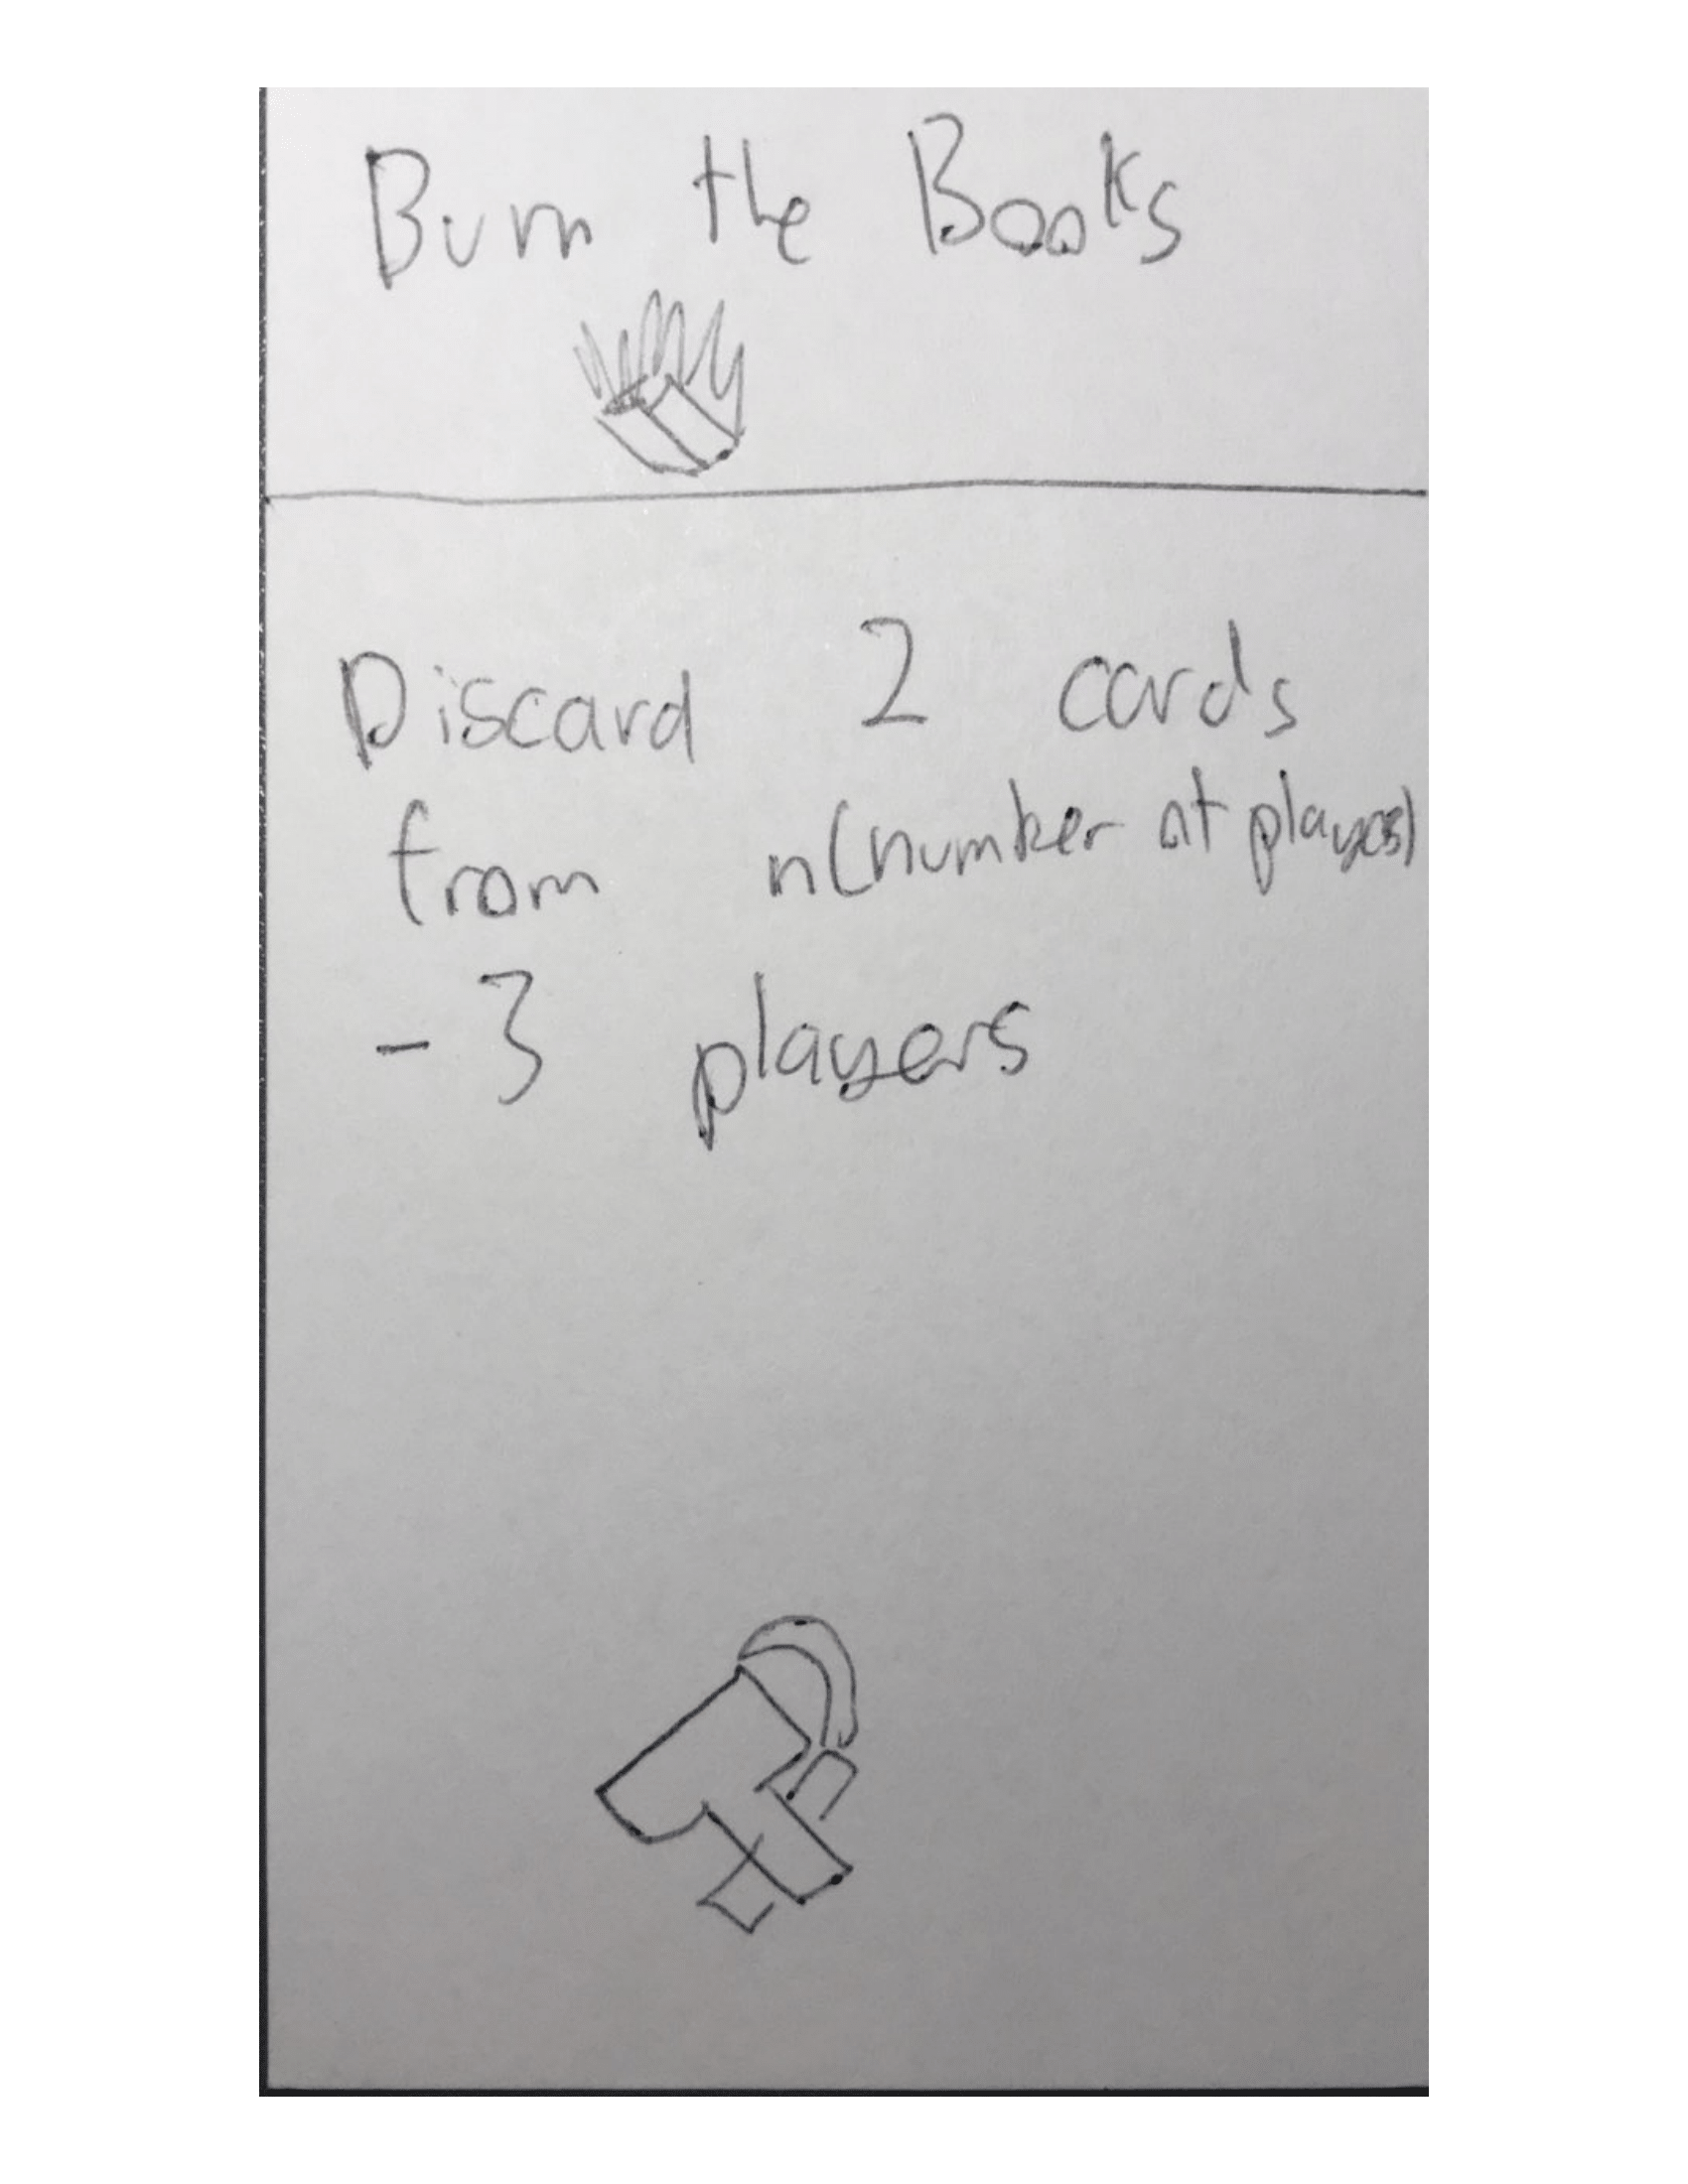 Burn the Books
Discard 2 cards
from n(number of players)
- 3 players